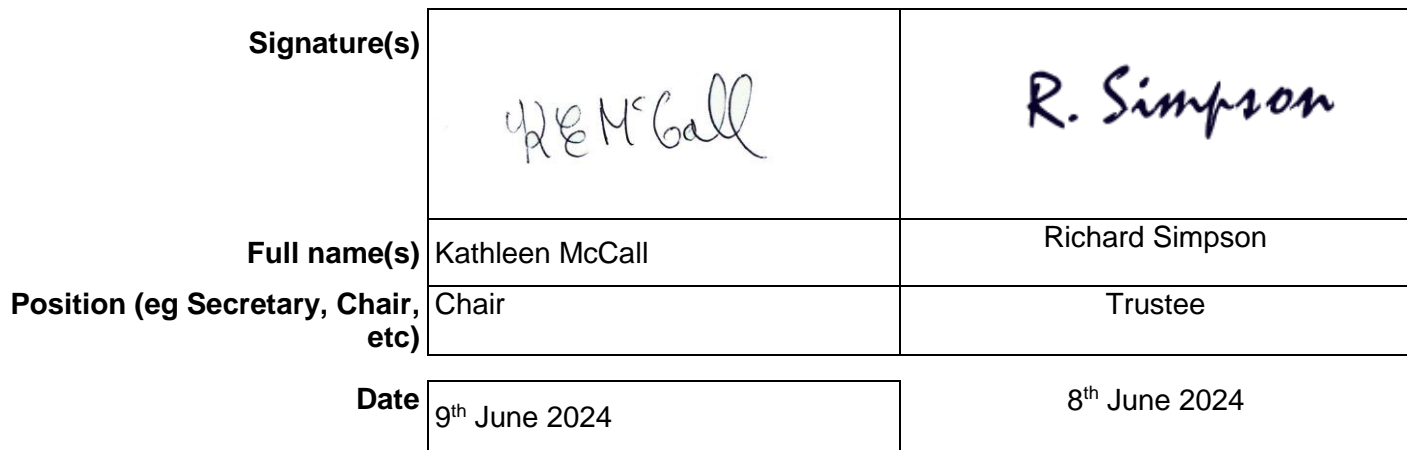 Signature(s)
KE McCall R. Simpson
Full name(s) Kathleen McCall Richard Simpson
Position (eg Secretary, Chair, Chair Trustee
etc)
Date 9th June 2024 8th June 2024